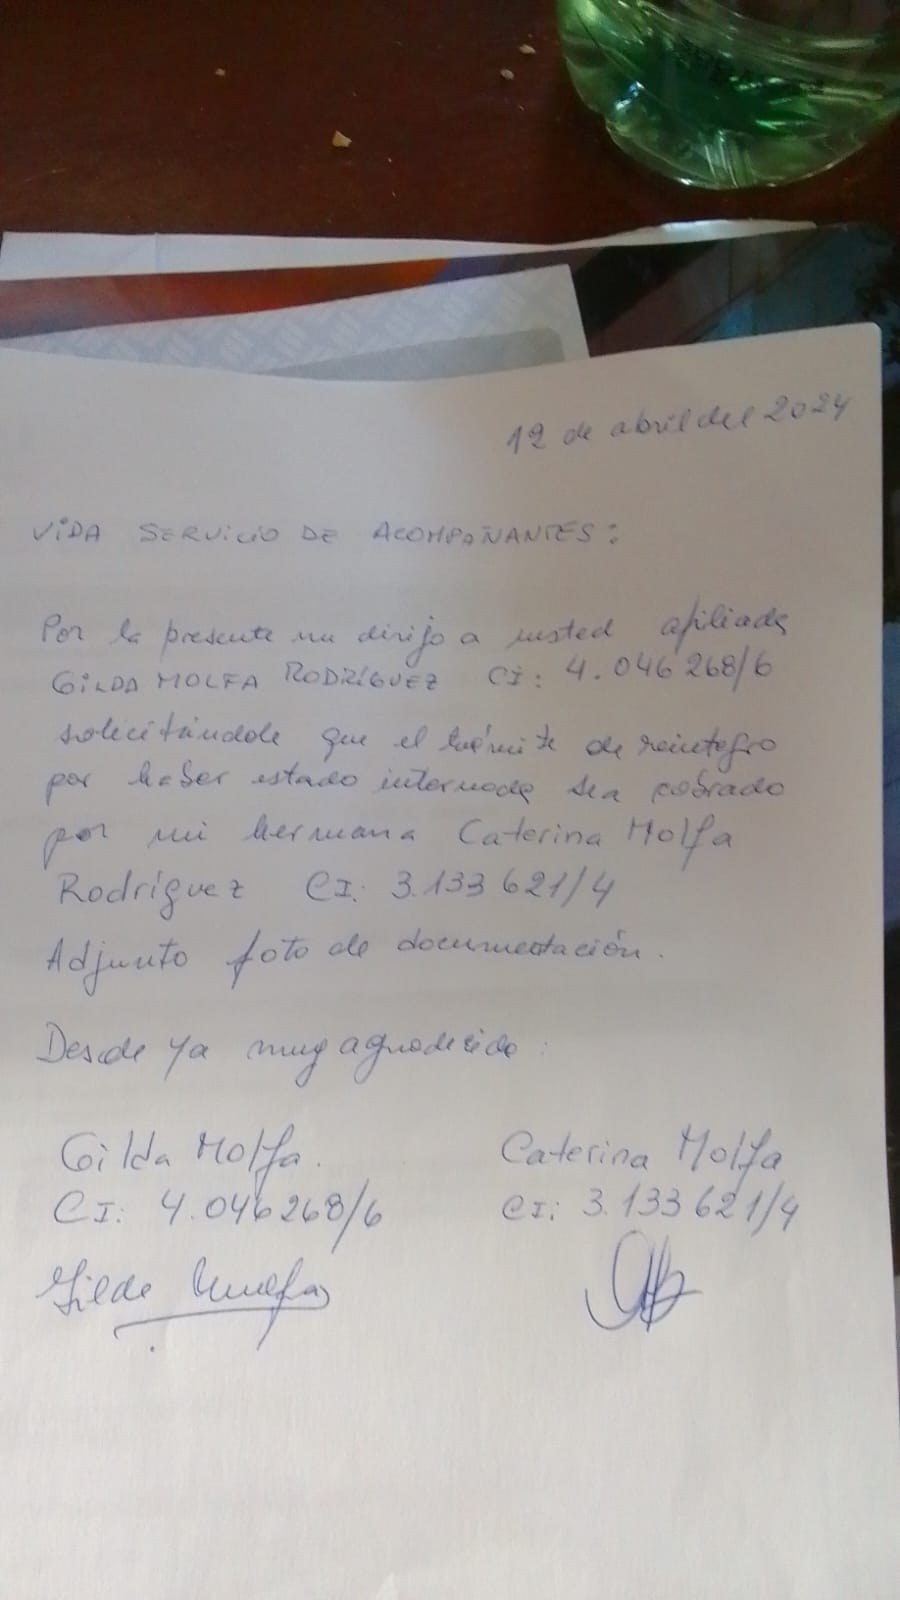 12 de abril del 2024
ViDA SERViCiO DE ACOMPAÑANTES:
Por la presente me dirijo a usted afiliada
GiLDA MOLFA RODRÍGUEZ CI: 4.046 268/6
solicitándole que el trámite de reintegro
por haber estado internada sea cobrado
por mi hermana Caterina Molfa
Rodríguez CI: 3.133 621/4
Adjunto foto de documentación.
Desde ya muy agradecida:
Gilda Molfa. Caterina Molfa
CI: 4.046 268/6 CI: 3.133 621/4
Gilda Molfa